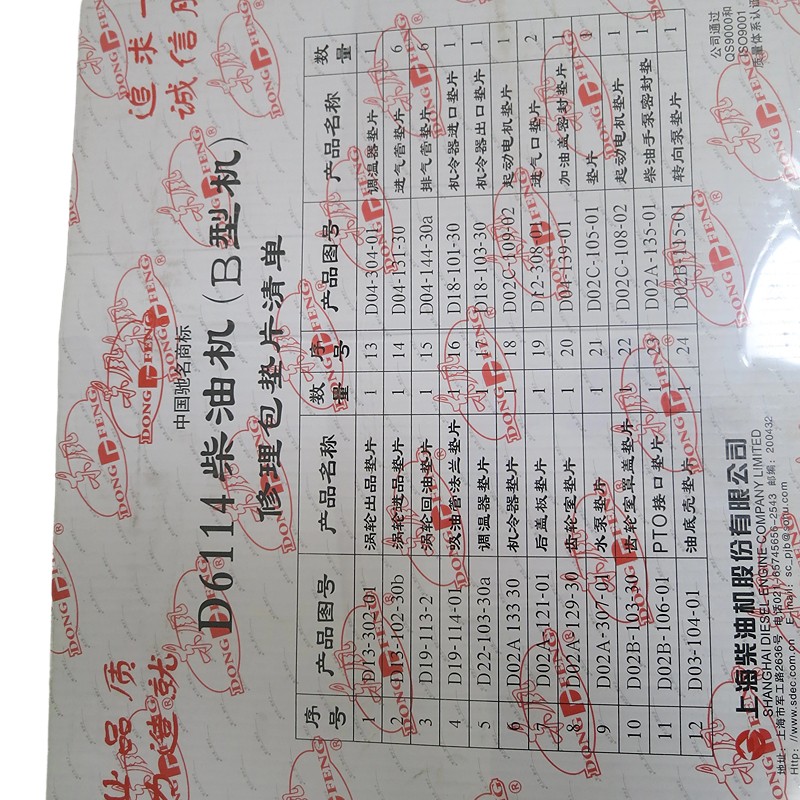 追求
诚信
品质
造就
中国驰名商标
D6114柴油机(B型机)
修理包垫片清单
序号 产品图号 产品名称 数量 序号 产品图号 产品名称 数量
1 D13-302-01 涡轮出品垫片 1 13 D04-304-01 调温器垫片 1
2 D13-102-30b 涡轮进品垫片 1 14 D04-131-30 进气管垫片 6
3 D19-113-2 涡轮回油垫片 1 15 D04-144-30a 排气管垫片 6
4 D19-114-01 吸油管法兰垫片 1 16 D18-101-30 机冷器进口垫片 1
5 D22-103-30a 调温器垫片 1 17 D18-103-30 机冷器出口垫片 1
6 D02A 133 30 机冷器垫片 18 D02C-109-02 起动电机垫片 1
7 D02A-121-01 后盖板垫片 1 19 D12-308-01 进气口垫片 2
8 D02A-129-30 齿轮室垫片 1 20 D04-139-01 加油盖密封垫片 1
9 D02A-307-01 水泵垫片 1 21 D02C-105-01 垫片 1
10 D02B-103-30 齿轮室罩盖垫片 1 22 D02C-108-02 起动电机垫片 1
11 D02B-106-01 PTO接口垫片 1 23 D02A-135-01 柴油手泵密封垫 1
12 D03-104-01 油底壳垫片 1 24 D02B-115-01 转向泵垫片 1
上海柴油机股份有限公司
SHANGHAI DIESEL ENGINE COMPANY LIMITED
地址：上海市军工路2636号 电话021-65745656-2543 邮编：200432
Http：//www.sdec.com.cn E-mail：sc_pjb@sohu.com
公司通过
QS9000和
ISO9001
质量体系认证
DONG FENG